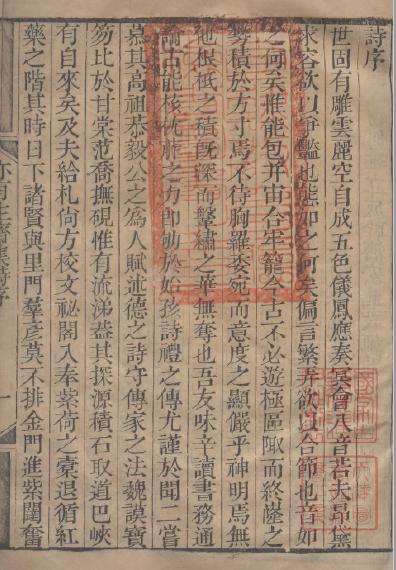 詩序
世固有雕雲麗空自成五色儀鳳應奏冥會八音若夫昂黛
求容欲以爭豔也能如之何矣偏言繁弄欲以合節也音如
之何矣惟能包幷宙合牢籠今古不必遊極區陬而終
積於方寸焉不待胸羅委宛而意度之顯儼乎神明焉無
他根柢之積旣深而鞶繡之華無奪也吾友味辛讀書務通
論古能核枕胙之力卽劬於始孩詩禮之傳尤謹於聞二嘗
慕其高祖恭毅公之爲人賦述德之詩守傳家之法魏謨寶
笏比於甘棠范喬撫硯惟有流涕蓋其探源積石取道巴峽
有自來矣及夫給札尙方校文祕閣入奉紫荷之橐退循紅
藥之階其時日下諸賢與里門羣彥莫不排金門淮紫闥奮
亦有生齋集詩序
一